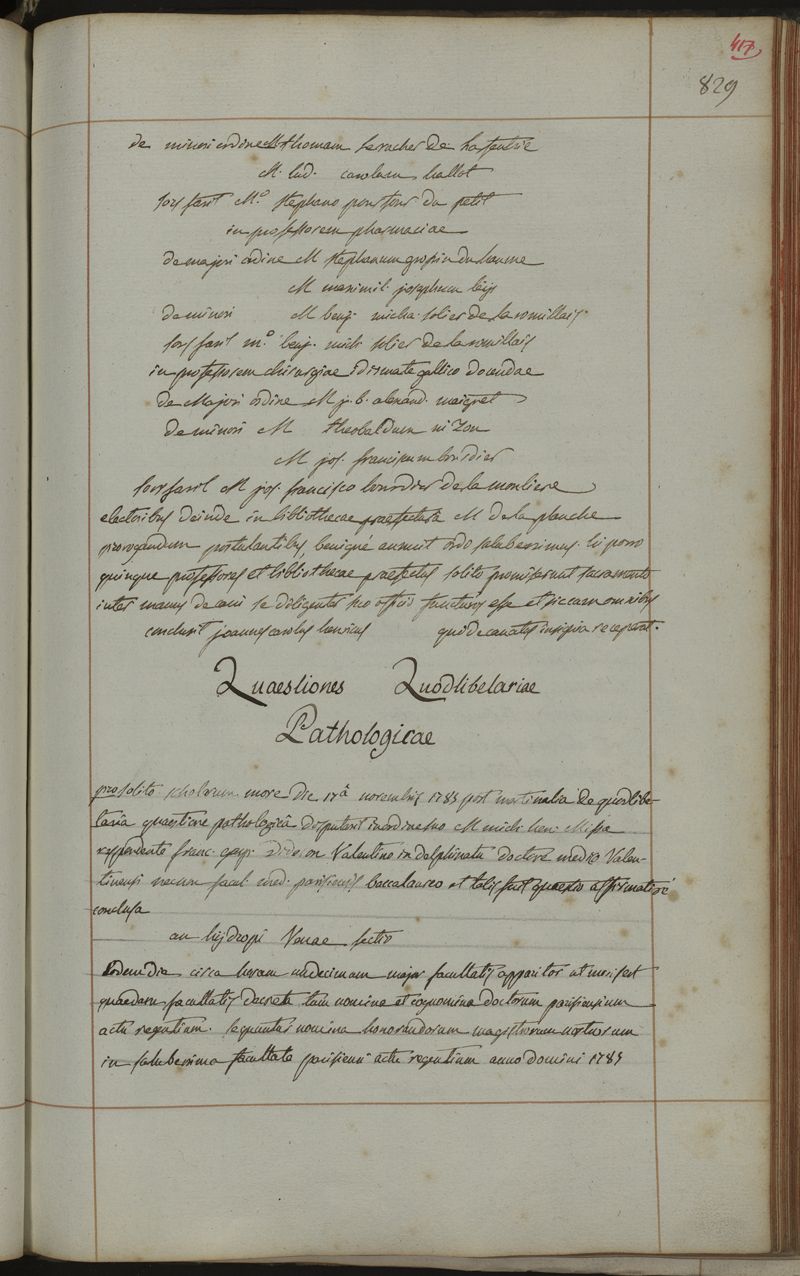 417
829
de minori ordine M thomam levacher de la feutrie
M. lud. carolum hallot
sors favit M.o stephano pourfour du petit
in professorem pharmaciae
de majori ordine M stephanum grossin duhaume
M maximil. josephum leys
de minori M benj. micha. solier de la romillais
sors favit m.o benj. mich solier de la romillais
in professorem chirurgiae idiomate gallico docendae
de Majori ordine M j. b. alexand. maigret
de minori M theobaldum nizon
M jos. franciscum bourdier
sors favit M jos. francisco bourdier de la mouliere
electoribus deinde in bibliothecae praefectura M de la planche
prorogandum postulantibus, benigne annuit ordo saluberrimus. hi porro
quinque professores et bibliothecae praefectus solito promiserunt sacramento
inter manus decani se diligenter suo officio functuros esse et sic cum omnibus
conclusit joannes carolus henricus quidecanatus insignia receperat.
Quaestiones Quodlibetariae
Pathologicae
pro solito scholarum more die 17â novembris 1785 post martinalia de quodlibe-
taria quaestione pathologicâ disputavit in ordine suo M mich. hen. Missa
respondente franc. Valentino in delphinatu doctore medico Valen-
tinensi necnon facul. med. parisiensis baccalaureo et talis fuit quaestio affirmativè
conclusa
an hijdropi Venae sectio
Eodem die circa horam undecimam major facultatis apparitor ut mos fert
quaedam facultatis decreta tum nomina et cognomina doctorum parisiensium
actu regentium. sequuntur nomina honorandorum magistrorum nostrorum
in saluberrima facultate parisiensi actu regentium anno domini 1785